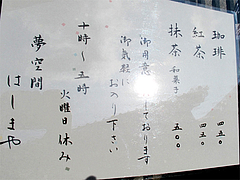 珈琲 四五〇
紅茶 四五〇
抹茶 和菓子 五〇〇
御用意しております
御気軽に
お入り下さい
十時〜五時
火曜日休み
夢空間
はしまや